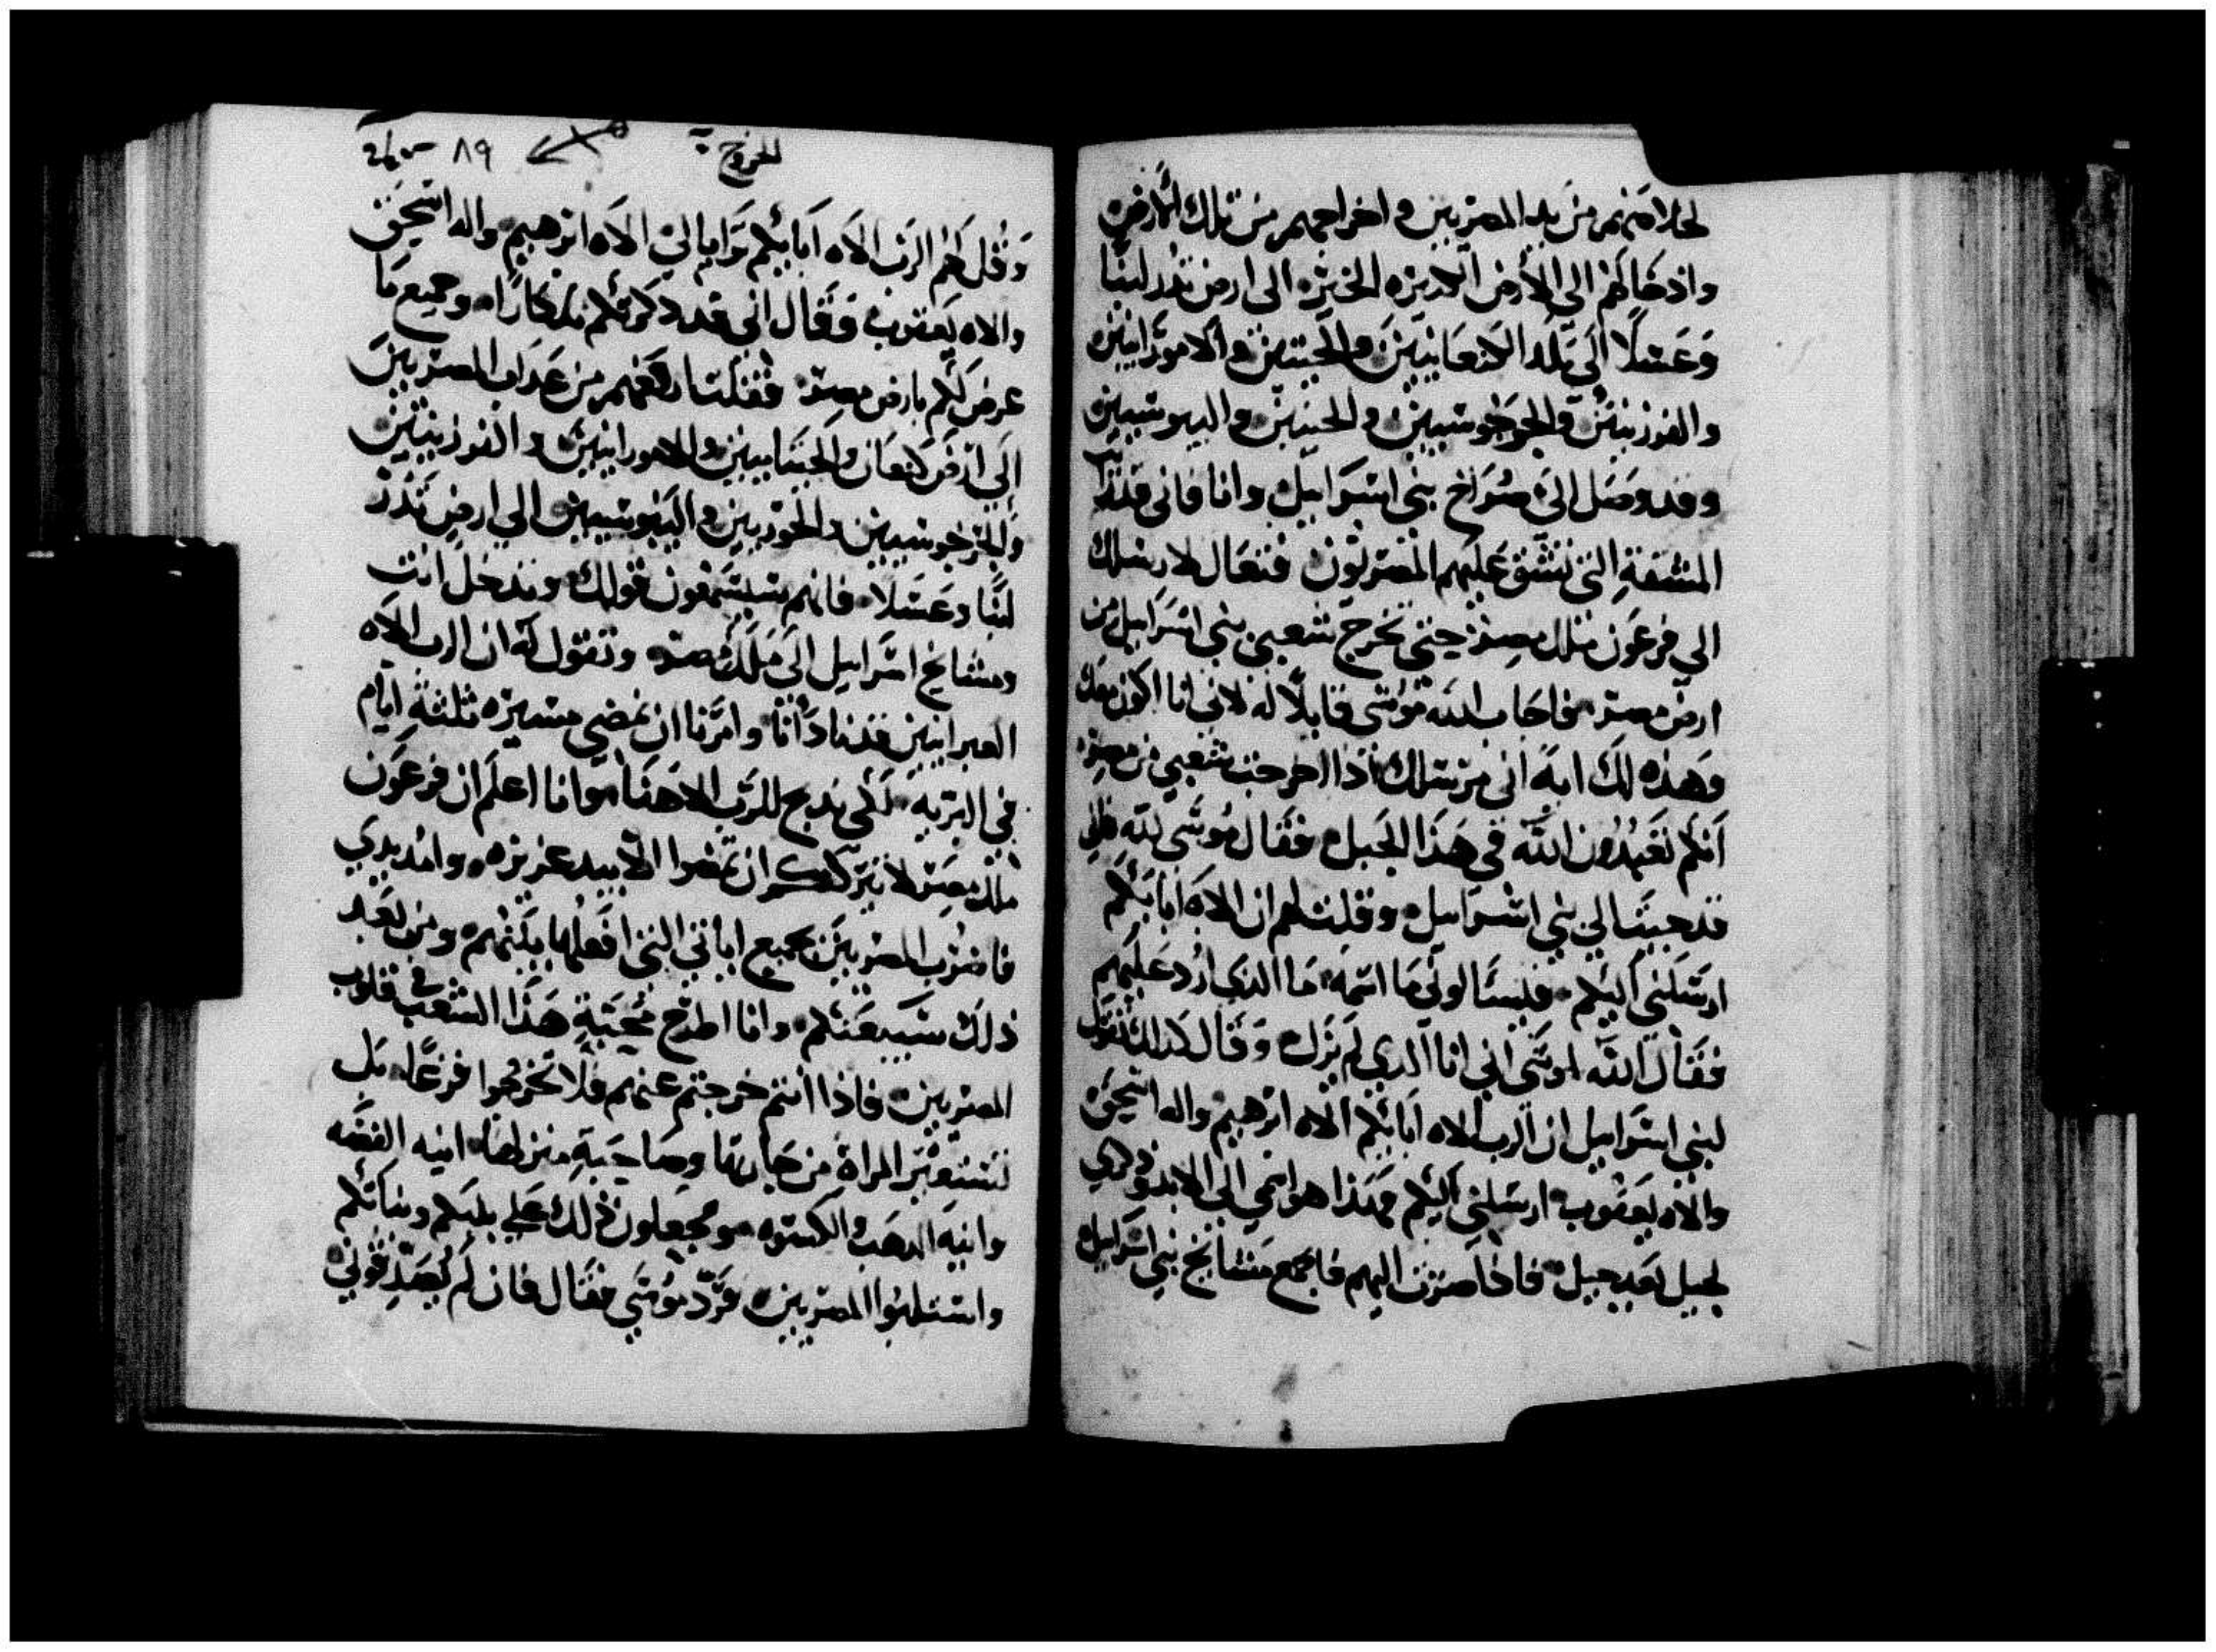 لخلاصهم من يد المصريين و اخراجهم من تلك الارض
وادخالهم الى الارض الكبيره الخيره الى ارض تدر لبنا
وَعَسَلًا الَى بَلَد الكنعَانيين والحيتين والاموَرَانيين
والفوزيين والجرجوسيين والحيين واليبوسيين
وقد وصَل الىَ صُرَاخ بني اسرَاييل وانا فاني قد رايت
المشقةِ التي تشق عليهم المصريون فتعال لارسلك
الي فرعَون ملك مصر حتي تخرج شعبي بني اسرَاييل من
ارض مصر فاجاب الله موسَى قايلًا له لاني انا اكون معك
وَهذه لكَ ايَه اني مرسلك اذا اخرجت شعبي من مصر
اَنكم تعبُدُون اللّه في هَذَا الجَبل فقَال مُوسَى للّه هانا
قد جيت الي بني اسرَاييل وقلت لهم ان الاه اَبَايَكم
ارسَلني اليكم فليسَالوني مَا اسمه مَا الذي ارُد عَليهم
فقَال اللّه لموسَى اني انا الدي لم يزَل وَقَال كدلك تقول
لبني اسرَاييل ان الرب الاه ابَايكم الاه ابرهيم واله اسحق
والاه يعقوب ارسَلني اليكم فهَذا هو اسمي الى الابد وذكري
لجيل بَعد جيل فاذا صرت اليهم فاجمع مشايخ بني اسرَاييل
الخروج ٨٩
وَقُل لهَم الرَب الاَه اَبَايكم تَرَايا لي الاَه ابرهيم واله اسحَق
والاه يَعقوب وَقَال اني قد دكرتكم تدكارًا وجميع مَا
عرض لَكم بارض مصر فقلت ارفعهم من عَدَاب المصريينَ
الَي ارض كنعَان والحيتانيين والامورانيين والفوزيين
والجرجوسيين والحوريين واليَبوسيين الي ارضٍ تَدُر
لبنًا وعَسَلا فانهم سَيسَمعُون قولك وتدخل انت
ومشايخ اسرَاييل الَى مَلَك مصر وتقول لَه ان الرب الاَه
العبرانيين قد نادَانَا وامَرنا ان نمضي مسيره ثلثةِ ايام
في البَريه لَكي ندبح للرَب الاهَنَا وانا اعلَم ان فرعَون
ملك مصَر لا يترككم ان تمضوا الا بيد عزيزه وامُد يدي
فاضرُب المصريين بجميع اياتي التي افعلها بَينهم ومن بَعَد
ذلكَ سَيبعَثكم وانا اطرَح مُحَبَةِ هَذَا الشعب في قلوب
المصريين فاذا انتم خرجتم عنهم فلَا تخرجُوا فرغًا بَل
تستعير المراة من جَارتها وصَاحبَةِ منزلها انيه الفضَه
وانيَه الدهَب والكسوه وتجعَلون ذلك عَلي بنيكم وبناتكم
واستسلبُوا المصريين فرَدّ موُسَي فقَال فان لَم يُصَدِقوني